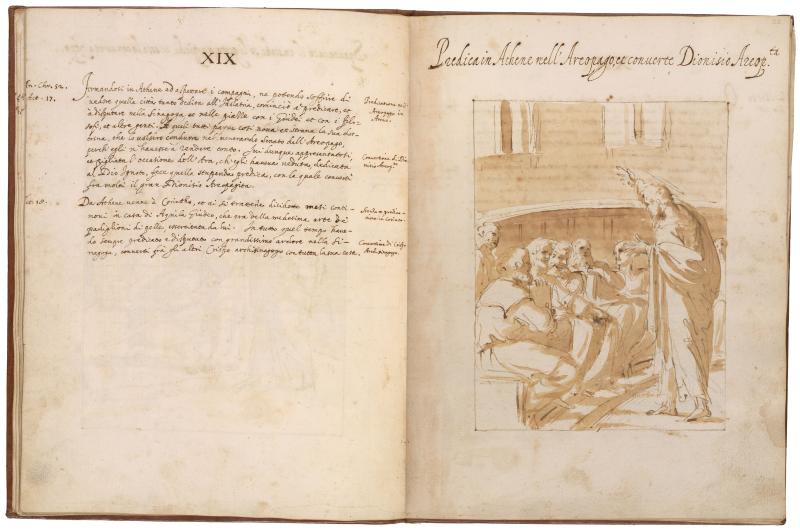 XIX
An. Chr. 52.
Act. 17.
Fermandosi in Athene ad aspettare i compagni, ne potendo soffrire di
vedere quella città tanto dedita all'Idolatria, cominciò a predicare, et
a disputare nella Sinagoga, et nelle piazze con i Giudei et con i filo-
sofi, et altre genti. A quei tutti parve così nova et strana la sua dot-
trina, che lo volsero condurre nel venerando Senato dell'Areopago,
perch'egli n'havesse à rendere conto. Qui dunque appresentatosi,
et pigliata l'occasione dell'Ara, ch'egli haveva veduta, dedicata
al Dio Ignoto, fece quella stupenda predica, con la quale convertì
fra molti il gran Dionisio Areopagita.
Predicatione nell'
Areopago in
Atene.
Conversione di Dio-
nisio Areop.
Act. 18.
Da Athene venne à Corintho, et vi si trattene diciotto mesi conti-
novi in casa di Aquila Giudeo, che era della medesima arte di
padiglioni di pelle, essercitata da lui. In tutto quel tempo haven-
do sempre predicato et disputato con grandissimo ardore nella Si-
nagoga, convertì fra gli altri Crispo archisinagogo con tutta la sua casa.
Conversione di Crispo
Archisinagogo.
Predica in Athene nell'Areopago, et converte Dionisio Areop.ta